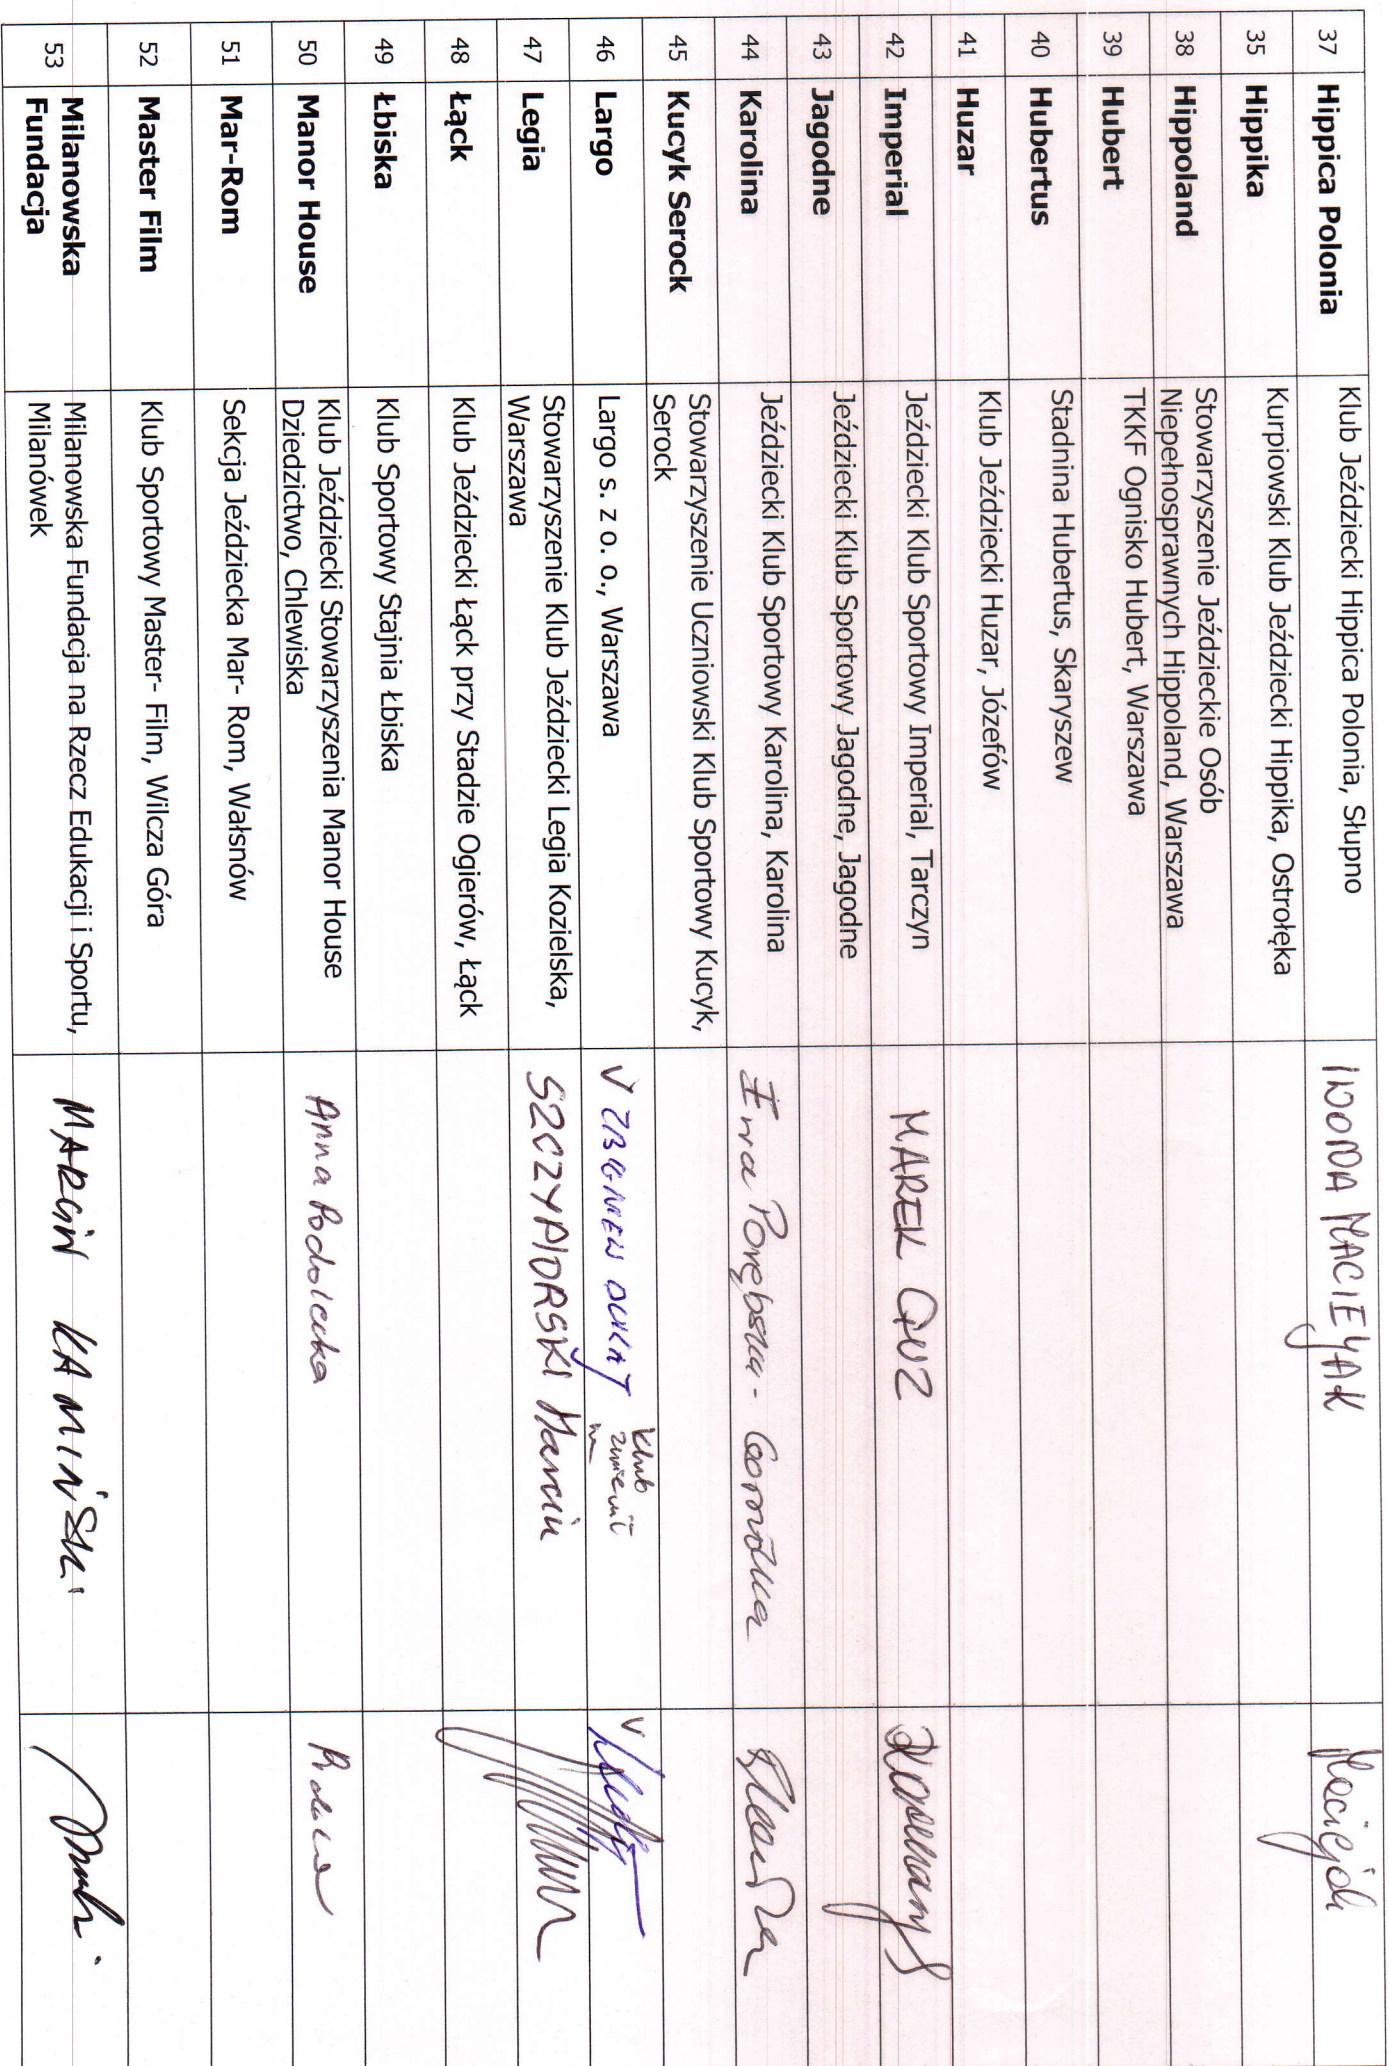 37 Hippica Polonia Klub Jeździecki Hippica Polonia, Słupno IWONA MACIEJAK
35 Hippika Kurpiowski Klub Jeździecki Hippika, Ostrołęka
38 Hippoland Stowarzyszenie Jeździeckie Osób
Niepełnosprawnych Hippoland, Warszawa
39 Hubert TKKF Ognisko Hubert, Warszawa
40 Hubertus Stadnina Hubertus, Skaryszew
41 Huzar Klub Jeździecki Huzar, Józefów
42 Imperial Jeździecki Klub Sportowy Imperial, Tarczyn MAREK
43 Jagodne Jeździecki Klub Sportowy Jagodne, Jagodne
44 Karolina Jeździecki Klub Sportowy Karolina, Karolina Ewa Porębska-
45 Kucyk Serock Stowarzyszenie Uczniowski Klub Sportowy Kucyk,
Serock
46 Largo Largo s. z o. o., Warszawa V ZBIGNIEW klub
zmienił
V
47 Legia Stowarzyszenie Klub Jeździecki Legia Kozielska,
Warszawa SZCZYPIORSKI Marcin
48 Łąck Klub Jeździecki Łąck przy Stadzie Ogierów, Łąck
49 Łbiska Klub Sportowy Stajnia Łbiska
50 Manor House Klub Jeździecki Stowarzyszenia Manor House
Dziedzictwo, Chlewiska Anna Podolecka
51 Mar-Rom Sekcja Jeździecka Mar- Rom, Wałsnów
52 Master Film Klub Sportowy Master- Film, Wilcza Góra
53 Milanowska
Fundacja Milanowska Fundacja na Rzecz Edukacji i Sportu,
Milanówek MARCIN KAMIŃSKI